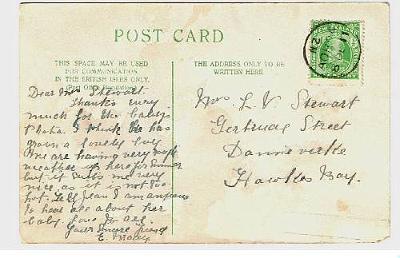 POST CARD
THIS SPACE MAY BE USED
FOR COMMUNICATION
IN THE BRITISH ISLES ONLY.
(Post Office Regulation).
THE ADDRESS ONLY TO BE
WRITTEN HERE
Dear Mrs Stewart.
Thanks very
much for the baby's
Photo. I think he has
a lovely
We are having very
weather up here for
but it suits me very
nice, as it is not too
hot. Tell Jean I am anxious
to hear all about her
baby. Love to all.
Your
E.
Mrs L. V Stewart
Gertrude Street
Dannevirke
Hawkes Bay.